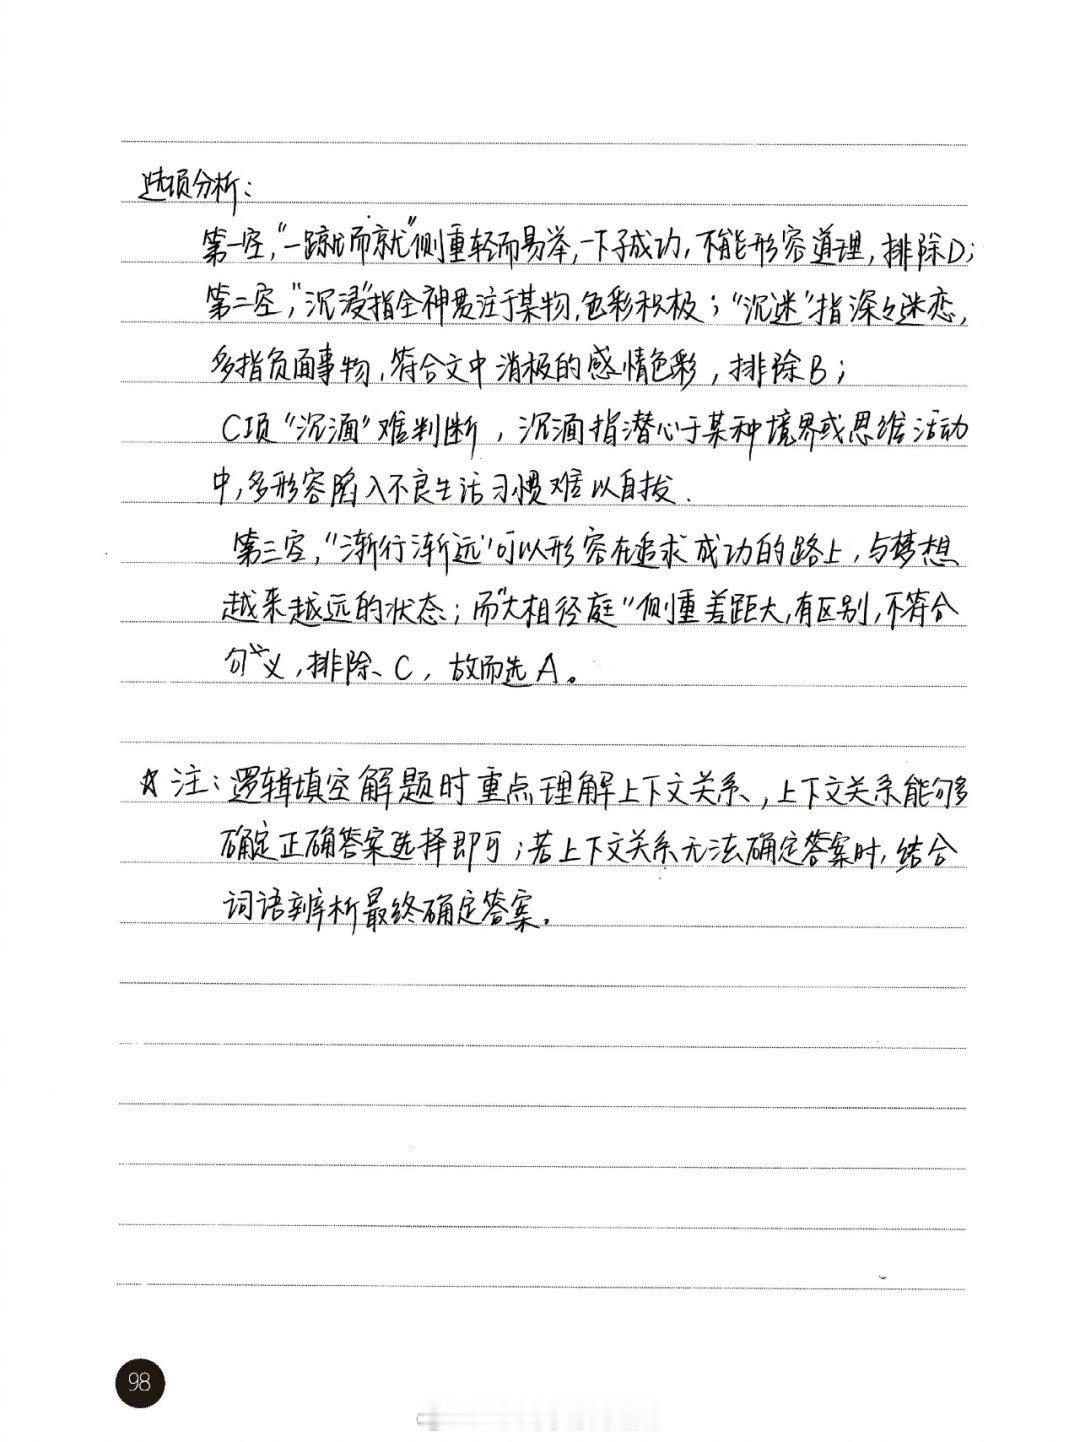 选项分析：
第一空，“一蹴而就”侧重轻而易举，一下子成功，不能形容道理，排除D；
第二空，“沉浸”指全神贯注于某物，色彩积极；“沉迷”指深深迷恋，
多指负面事物，符合文中消极的感情色彩，排除B；
C项“沉湎”难判断，沉湎指潜心于某种境界或思维活动
中，多形容陷入不良生活习惯难以自拔.
第三空，“渐行渐远”可以形容在追求成功的路上，与梦想
越来越远的状态；而“大相径庭”侧重差距大，有区别，不符合
句义，排除、C，故而选A。
☆注：逻辑填空解题时重点理解上下文关系，上下文关系能够
确定正确答案选择即可；若上下文关系无法确定答案时，结合
词语辨析最终确定答案.
98